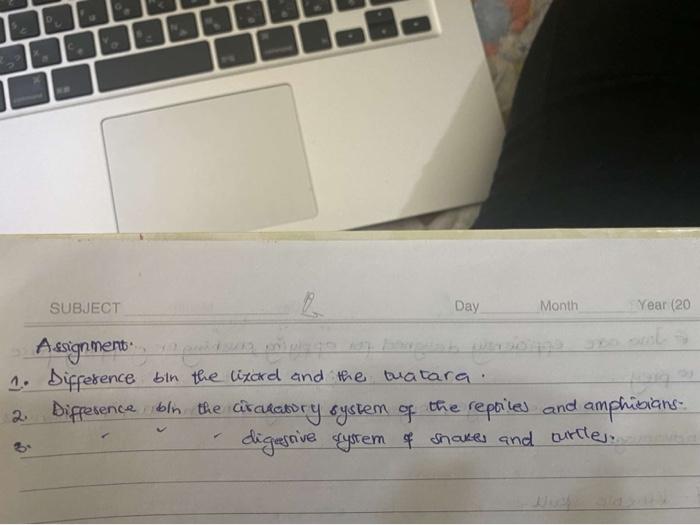 SUBJECT 2 Day Month Year (20
Assignment.
1. Difference b/n the lizard and the tuatara.
2. Difference b/n the circulatory system of the reptiles and amphibians.
3. " " " digestive system of snakes and turtles.